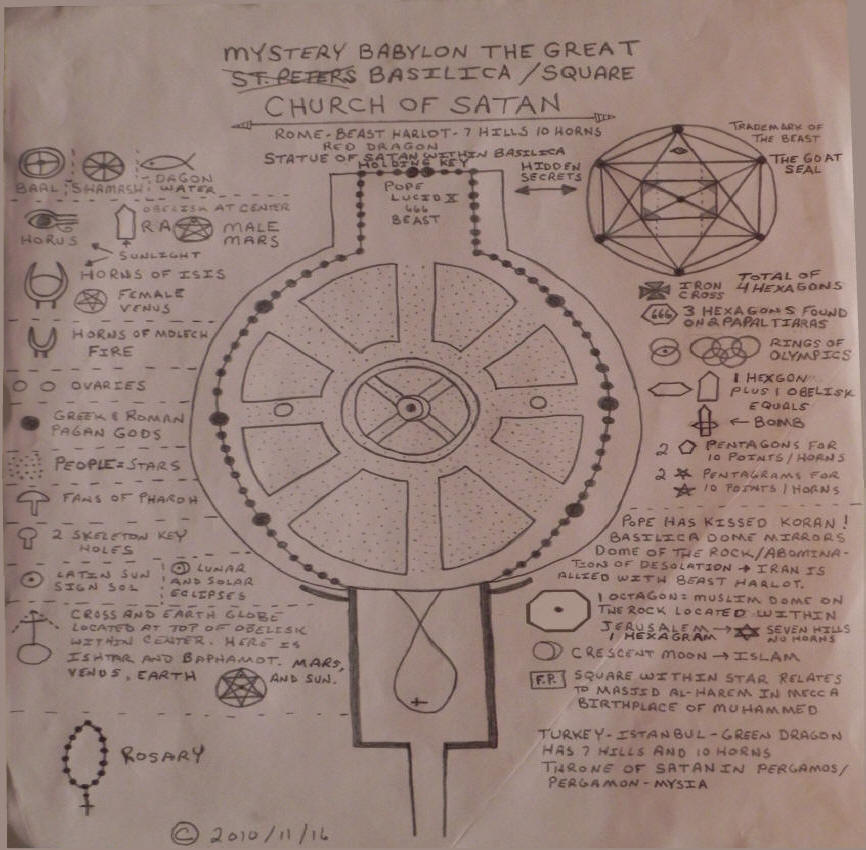 MYSTERY BABYLON THE GREAT
ST. PETERS BASILICA / SQUARE
CHURCH OF SATAN
ROME - BEAST HARLOT - 7 HILLS 10 HORNS
RED DRAGON
STATUE OF SATAN WITHIN BASILICA
HOLDING KEY
POPE
LUCID X
666
BEAST
HIDDEN
SECRETS
BAAL ; SHAMASH ;
DAGON
WATER
OBELISK AT CENTER
HORUS
RA
MALE
MARS
SUNLIGHT
HORNS OF ISIS
FEMALE
VENUS
HORNS OF MOLECH
FIRE
OVARIES
GREEK & ROMAN
PAGAN GODS
PEOPLE = STARS
FANS OF PHAROH
2 SKELETON KEY
HOLES
LATIN SUN
SIGN SOL
LUNAR
AND SOLAR
ECLIPSES
CROSS AND EARTH GLOBE
LOCATED AT TOP OF OBELISK
WITHIN CENTER. HERE IS
ISHTAR AND BAPHAMOT. MARS,
VENUS, EARTH AND SUN.
ROSARY
© 2010/11/16
TRADEMARK OF
THE BEAST
THE GOAT
SEAL
TOTAL OF
4 HEXAGONS
IRON
CROSS
666
3 HEXAGONS FOUND
ON 2 PAPAL TIARAS
RINGS OF
OLYMPICS
1 HEXGON
PLUS 1 OBELISK
EQUALS
BOMB
2 PENTAGONS FOR
10 POINTS / HORNS
2 PENTAGRAMS FOR
10 POINTS / HORNS
POPE HAS KISSED KORAN!
BASILICA DOME MIRRORS
DOME OF THE ROCK/ABOMINA-
TION OF DESOLATION → IRAN IS
ALLIED WITH BEAST HARLOT.
1 OCTAGON = MUSLIM DOME ON
THE ROCK LOCATED WITHIN
JERUSALEM → SEVEN HILLS
1 HEXAGRAM NO HORNS
CRESCENT MOON → ISLAM
F.P. SQUARE WITHIN STAR RELATES
TO MASJID AL-HAREM IN MECCA
BIRTHPLACE OF MUHAMMED
TURKEY - ISTANBUL - GREEN DRAGON
HAS 7 HILLS AND 10 HORNS
THRONE OF SATAN IN PERGAMOS/
PERGAMON - MYSIA